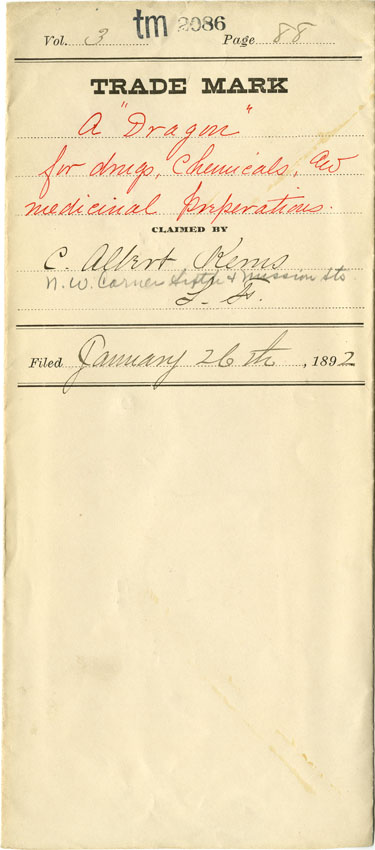 Vol. 3 tm 2086 Page 88
TRADE MARK
A "Dragon"
for drugs, Chemicals, and
medicinal preperations.
CLAIMED BY
C. Albert Kerns
N.W. Corner Sixth & Mission Sts
S. F.
Filed January 26th, 1892